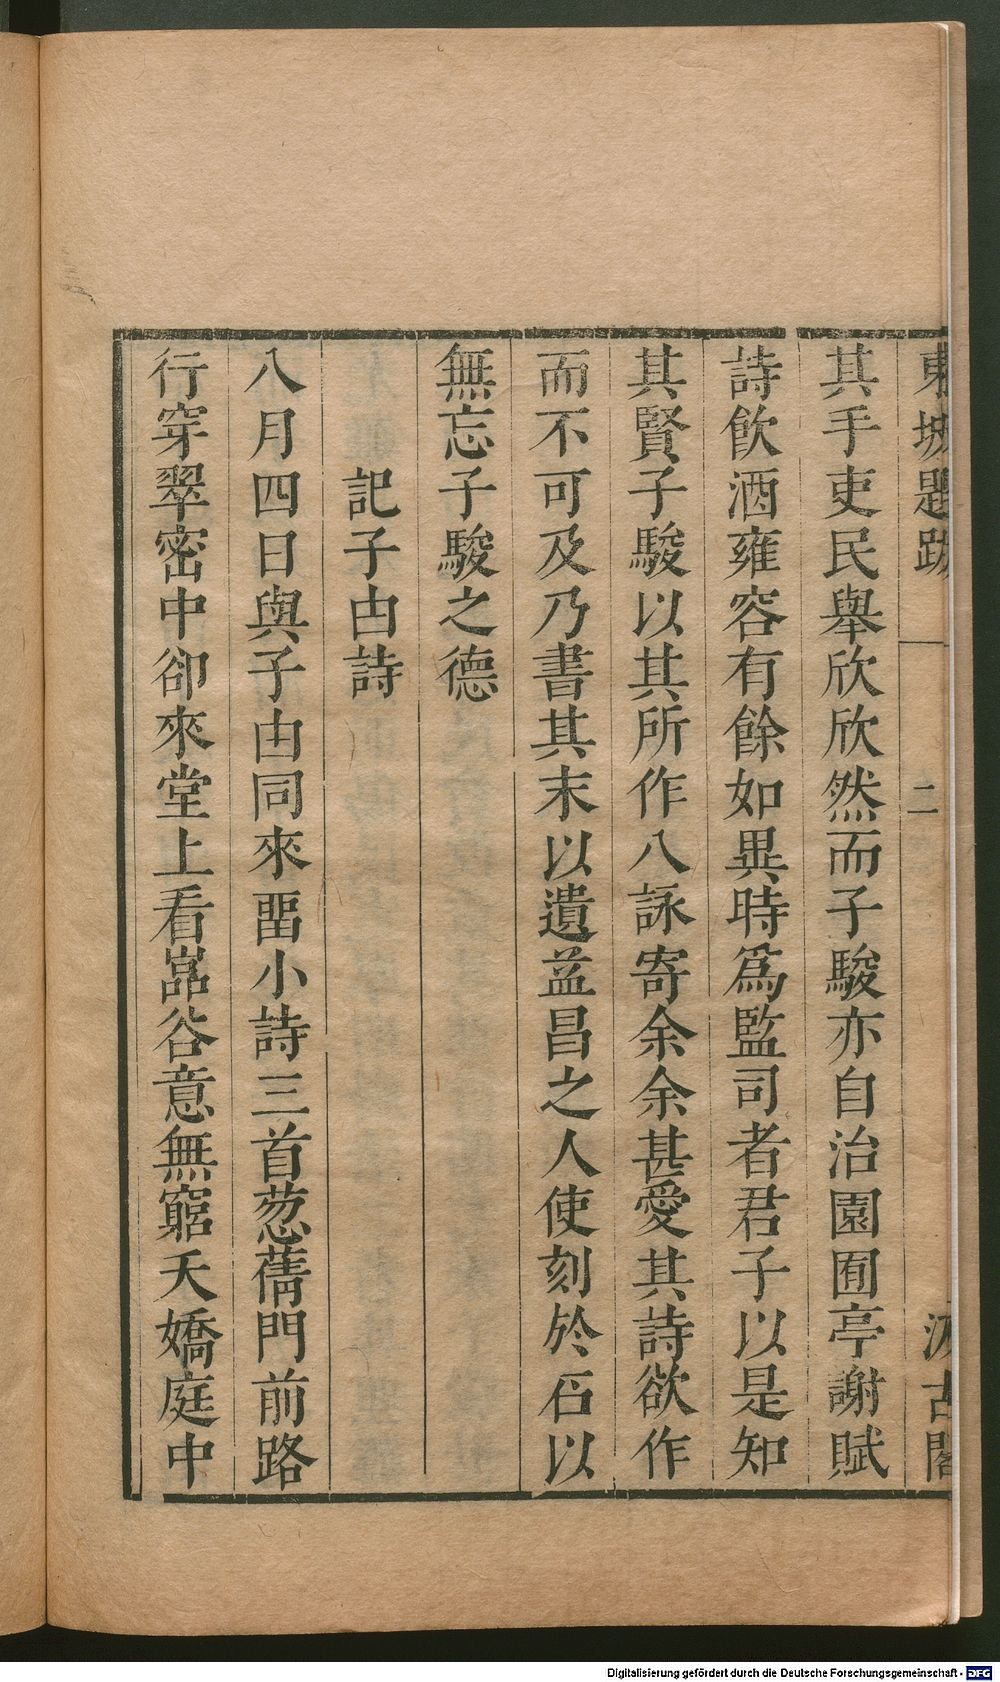 東坡題跋 二 汲古閣
其手吏民舉欣欣然而子駿亦自治園囿亭謝賦
詩飲酒雍容有餘如異時爲監司者君子以是知
其賢子駿以其所作八詠寄余余甚愛其詩欲作
而不可及乃書其末以遺益昌之人使刻於石以
無忘子駿之德
記子由詩
八月四日與子由同來畱小詩三首葱蒨門前路
行穿翠密中卻來堂上看嵓谷意無窮夭嬌庭中
Digitalisierung gefördert durch die Deutsche Forschungsgemeinschaft - DFG